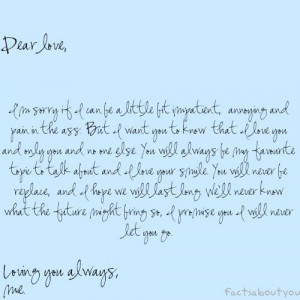 Dear love,
I'm sorry if I can be a little bit impatient, annoying and
pain in the ass. But I want you to know that I love you
and only you and no one else. You will always be my favourite
topic to talk about and I love your smile. You will never be
replace, and I hope we will last long. We'll never know
what the future might bring so, I promise you I will never
let you go.
Loving you always,
me.
factsaboutyou